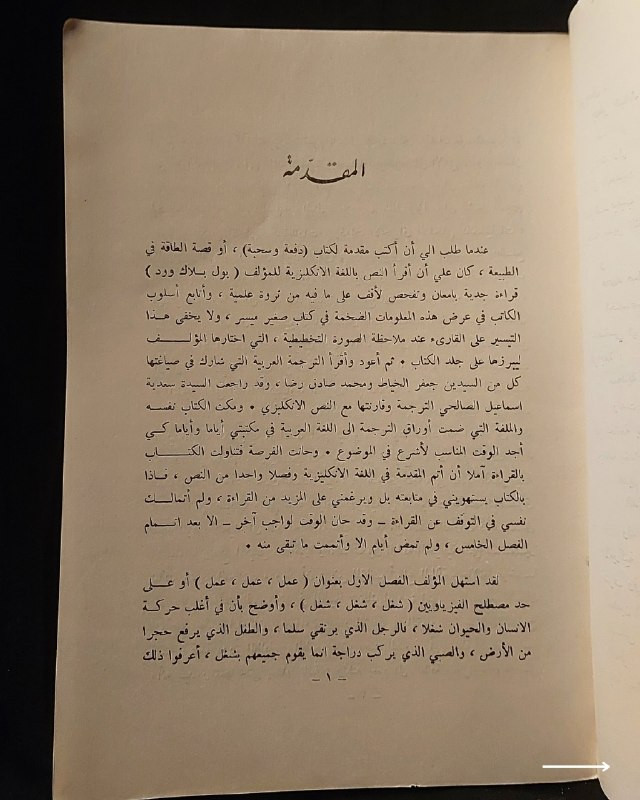 المقدّمة
عندما طلب الي أن أكتب مقدمة لكتاب (دفعة وسحبة) ، أو قصة الطاقة في
الطبيعة ، كان علي أن أقرأ النص باللغة الانكليزية للمؤلف ( بول بلاك وود )
قراءة جدية بامعان وتفحص لأقف على ما فيه من ثروة علمية ، وأتابع أسلوب
الكاتب في عرض هذه المعلومات الضخمة في كتاب صغير ميسر ، ولا يخفى هـذا
التيسير على القارىء عند ملاحظة الصورة التخطيطية ، التي اختارها المؤلـــف
ليبرزها على جلد الكتاب • ثم أعود وأقرأ الترجمة العربية التي شارك في صياغتها
كل من السيدين جعفر الخياط ومحمد صادق رضا ، وقد راجعت السيدة سعدية
اسماعيل الصالحي الترجمة وقارنتها مع النص الانكليزي • ومكث الكتاب نفسـه
والملفة التي ضمت أوراق الترجمة الى اللغة العربية في مكتبتي أياما وأياما كـي
أجد الوقت المناسب لأشرع في الموضوع • وحانت الفرصة فتناولت الكتـــاب
بالقراءة آملا أن أتم المقدمة في اللغة الانكليزية وفصلا واحدا من النص ، فـاذا
بالكتاب يستهويني في متابعته بل ويرغمني على المزيد من القراءة ، ولم أتمالــك
نفسي في التوقف عن القراءة ــ وقد حان الوقت لواجب آخر ــ الا بعد اتــمام
الفصل الخامس ، ولم تمض أيام الا وأتممت ما تبقى منه •
لقد استهل المؤلف الفصل الاول بعنوان ( عمل ، عمل ، عمل ) أو عـلى
حد مصطلح الفيزياويين ( شغل ، شغل ، شغل ) ، وأوضح بأن في أغلب حركـة
الانسان والحيوان شغلا ، فالرجل الذي يرتقي سلما ، والطفل الذي يرفع حجرا
من الأرض ، والصبي الذي يركب دراجة انما يقوم جميعهم بشغل ، أعرفوا ذلك
ــ ١ ــ